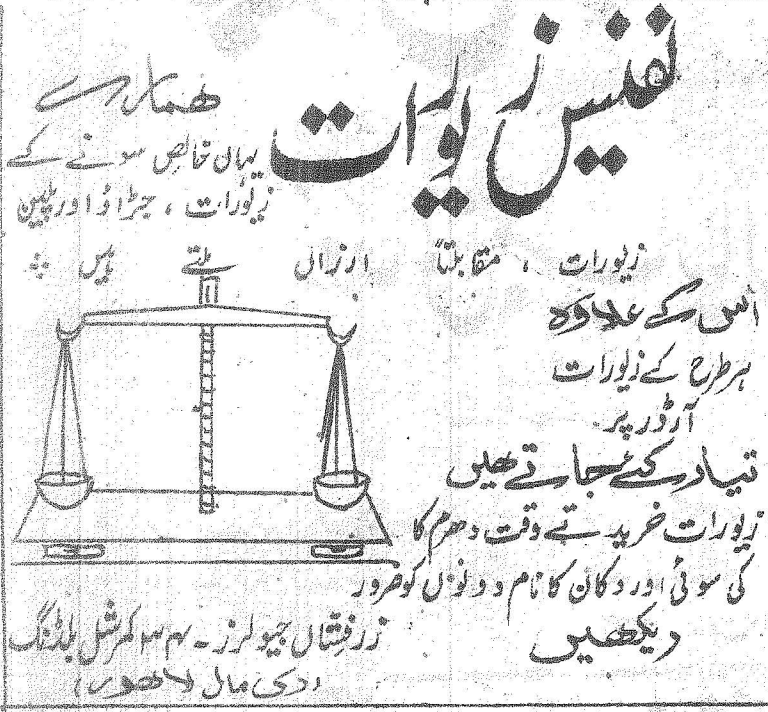 نفیس زیورات
ھمارے
یہاں خالص سونے کے
زیورات ، جڑاؤ اور پلین
زیورات ، مقابلتاً ارزاں ملتے ہیں
اس کے علاوہ
ہر طرح کے زیورات
آرڈر پر
تیار کئے جاتے ھیں
زیورات خریدتے وقت دھرم کا
کی سوئی اور دکان کا نام دونوں کو ضرور
دیکھیں
زرفشاں جیولرز ۔ ۳۴ کمرشل بلڈنگ
(دی مال لاھور)